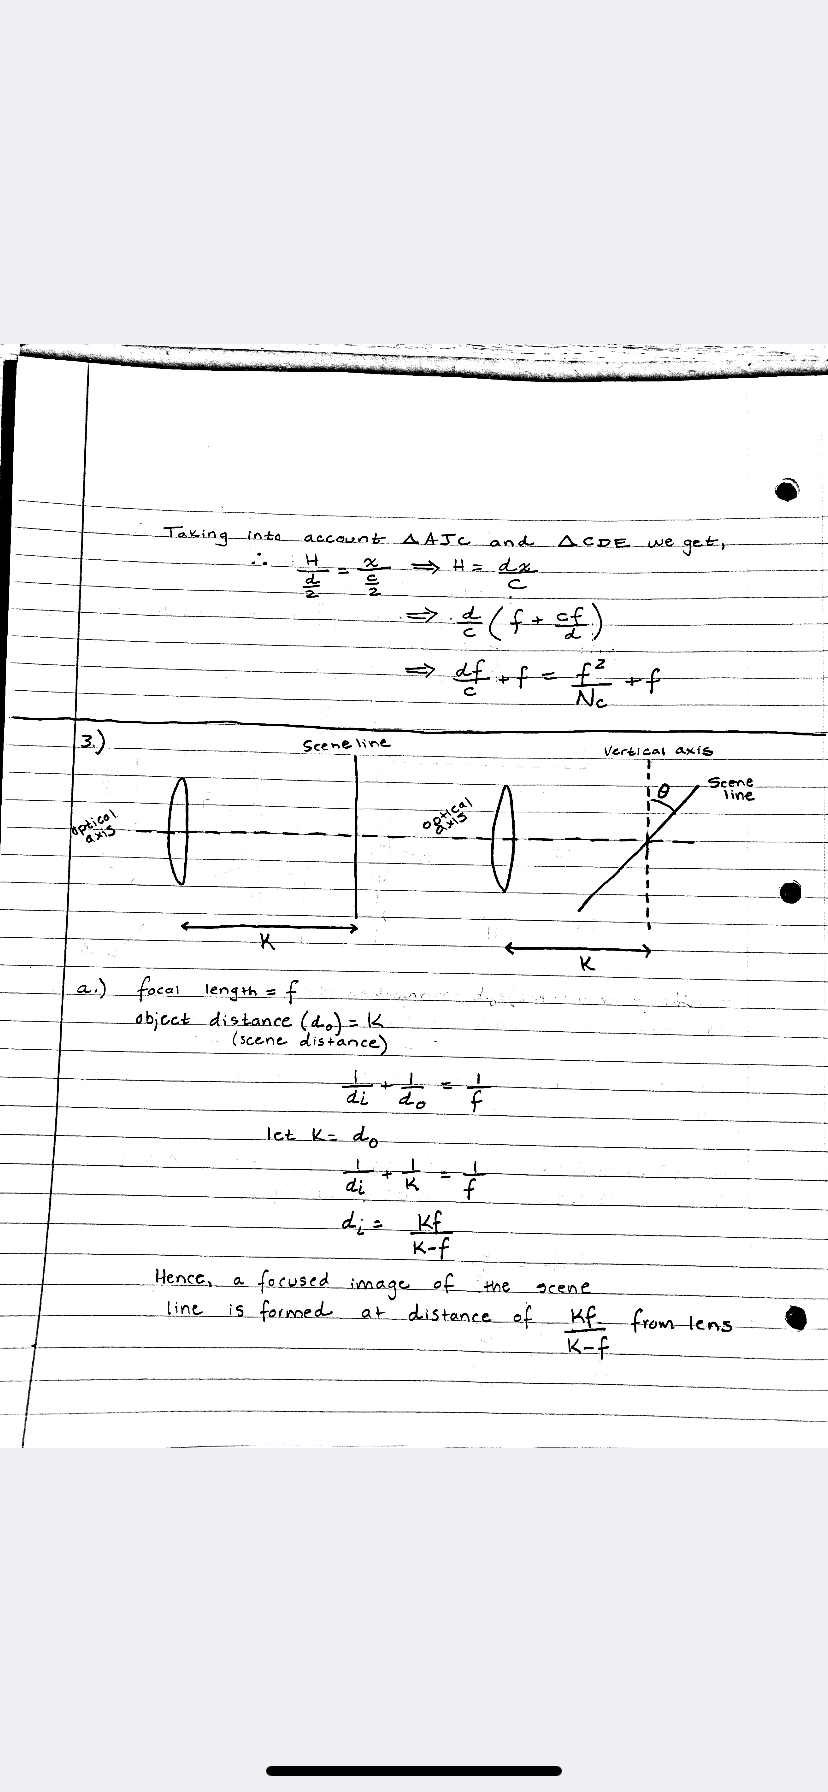 Taking into account △AJC and △CDE we get,
∴ H/(d/2) = x/(c/2) ⇒ H = dx/c
⇒ d/c (f + cf/d)
⇒ df/c + f = f²/Nc + f
3.)
Scene line
Vertical axis
θ
Scene
line
optical
axis
optical
axis
K
K
a.) focal length = f
object distance (do) = K
(scene distance)
1/di + 1/do = 1/f
let K = do
1/di + 1/K = 1/f
di = Kf/K-f
Hence, a focused image of the scene
line is formed at distance of Kf/K-f from lens